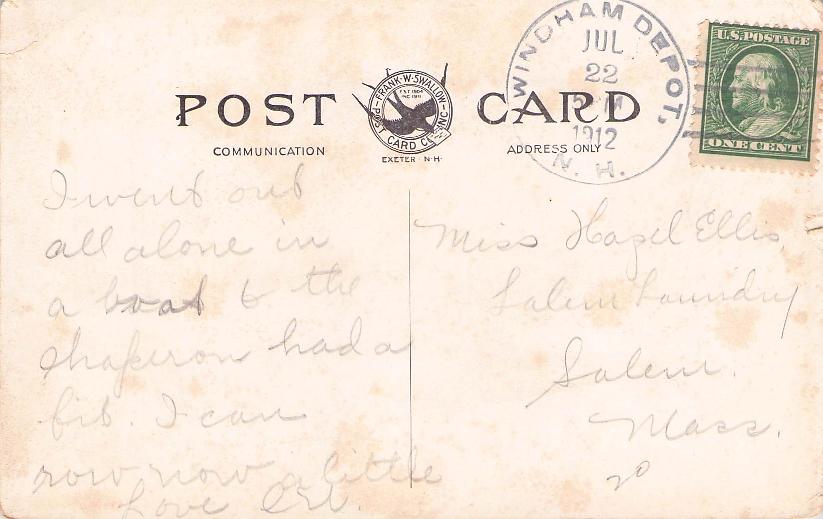 WINDHAM DEPOT,
JUL
22
M
1912
N. H.
U.S. POSTAGE
ONE CENT
POST CARD
FRANK·W·SWALLOW
POST CARD CO. INC
EST 1904
INC 1911
EXETER N·H·
COMMUNICATION
ADDRESS ONLY
I went out
all alone in
a boat & the
chaperon had a
fit. I can
row now a little
Love
Miss Hazel Ellis
Salem Laundry
Salem.
Mass.